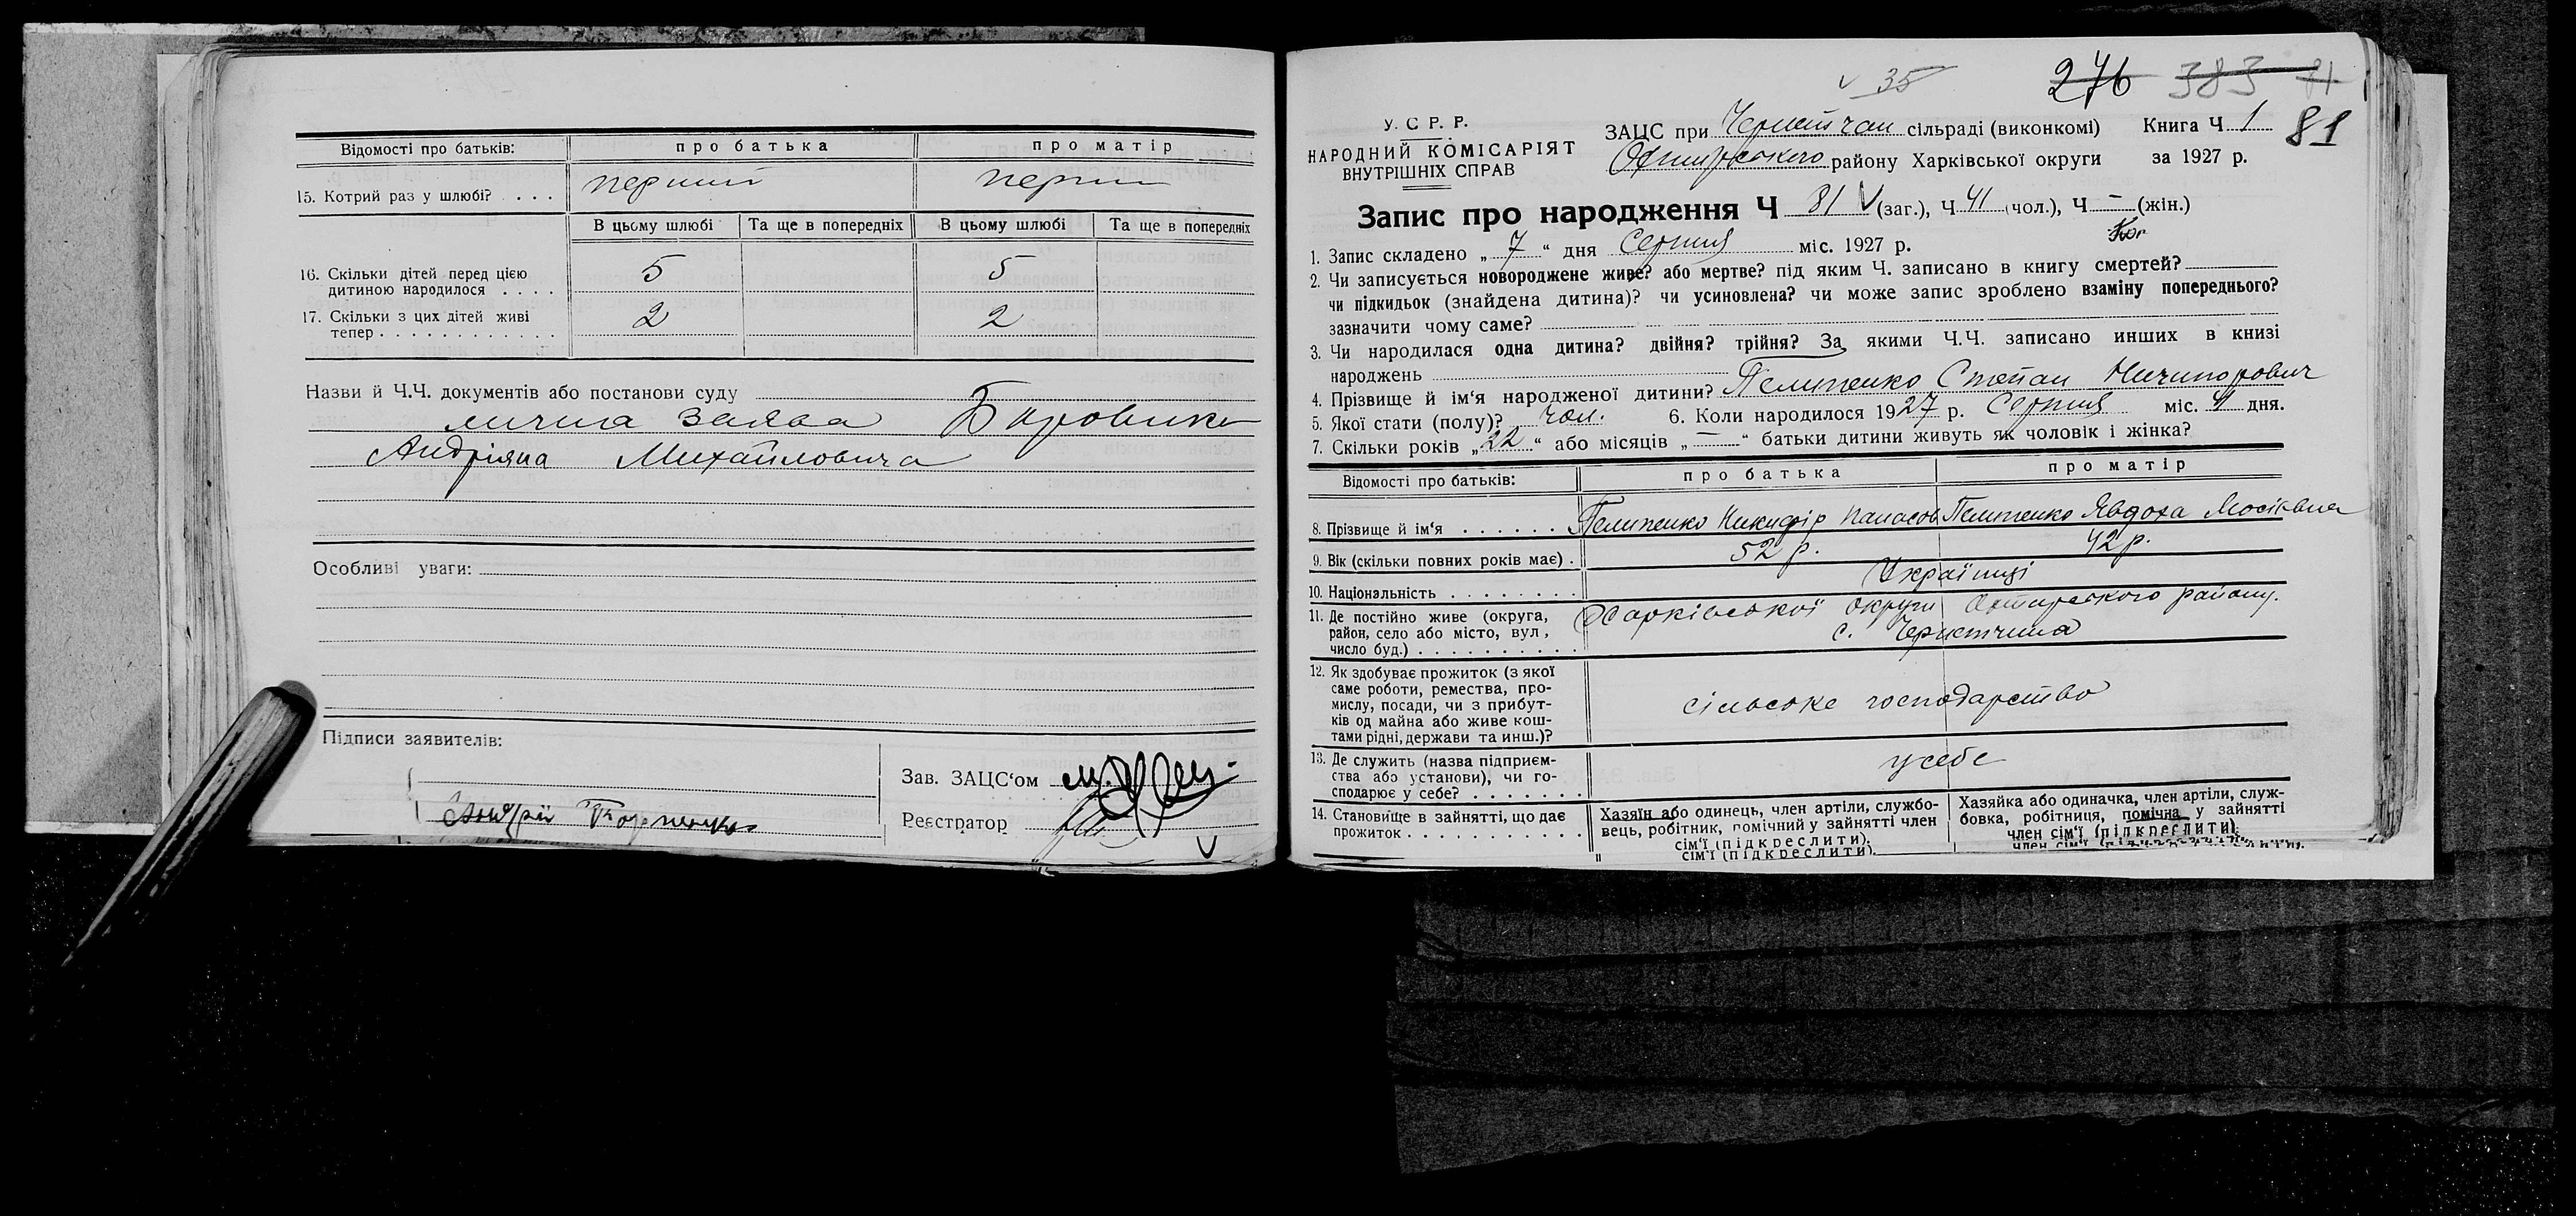 Відомості про батьків: про батька про матір
15. Котрий раз у шлюбі? . . . перший перш
В цьому шлюбі Та ще в попередніх В цьому шлюбі Та ще в попередніх
16. Скільки дітей перед цією
дитиною народилося . . . . 5 5
17. Скільки з цих дітей живі
тепер . . . . . . . . . . . . 2 2
Назви й Ч.Ч. документів або постанови суду
лична заява
Андріяна Михайловича
Особливі уваги:
Підписи заявителів:
Зав. ЗАЦС‘ом
Андрій
Реєстратор
V
v 35 276 383 81
У. С Р. Р.
НАРОДНИЙ КОМІСАРІЯТ
ВНУТРІШНІХ СПРАВ
ЗАЦС при сільраді (виконкомі) Книга Ч 1 81
району Харківської округи за 1927 р.
Запис про народження Ч 81 V (заг.), Ч 41 (чол.), Ч — (жін.)
1. Запис складено „ 7 “ дня Серпня міс. 1927 р.
2. Чи записується новороджене живе? або мертве? під яким Ч. записано в книгу смертей?
чи підкидьок (знайдена дитина)? чи усиновлена? чи може запис зроблено взаміну попереднього?
зазначити чому саме?
3. Чи народилася одна дитина? двійня? трійня? За якими Ч.Ч. записано инших в книзі
народжень
4. Прізвище й ім‘я народженої дитини? Пелипенко Степан Ничипорович
5. Якої стати (полу)? чол. 6. Коли народилося 1927 р. Серпня міс. 4 дня.
7. Скільки років „ 22 “ або місяців „ — “ батьки дитини живуть як чоловік і жінка?
Відомості про батьків: про батька про матір
8. Прізвище й ім‘я . . . . . . Пелипенко Никифір Панасов Пелипенко Явдоха Мосіївна
9. Вік (скільки повних років має) . 52 р. 42 р.
10. Національність . . . . . . . . Українці
11. Де постійно живе (округа,
район, село або місто, вул,
число буд.) . . . . . . . . . . Харківської округи Охтирського району.
с.
12. Як здобуває прожиток (з якої
саме роботи, ремества, про-
мислу, посади, чи з прибут-
ків од майна або живе кош-
тами рідні, держави та инш.)? сільське господарство
13. Де служить (назва підприєм-
ства або установи), чи го-
сподарює у себе? . . . . . . . у себе
14. Становище в зайнятті, що дає
прожиток . . . . . . . . . . .
Хазяїн або одинець, член артіли, службо-
вець, робітник, помічний у зайнятті член
сім‘ї (підкреслити).
сім‘ї (підкреслити).
Хазяйка або одиначка, член артіли, служ-
бовка, робітниця, помічна у зайнятті
член сім‘ї (підкреслити).